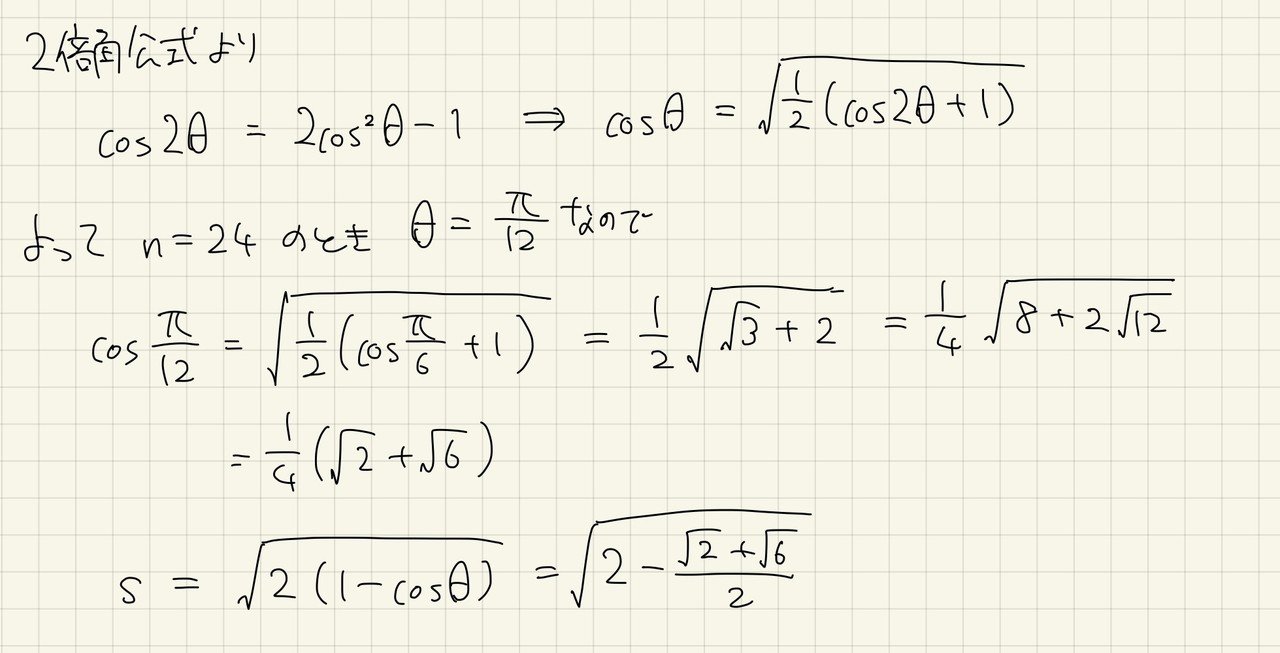 2倍角公式より
cos2θ = 2cos²θ - 1 ⇒ cosθ = √(1/2 (cos2θ + 1))
よって n = 24 のとき θ = π/12 なので
cos π/12 = √(1/2 (cos π/6 + 1)) = 1/2 √(√3 + 2) = 1/4 √(8 + 2√12)
= 1/4 (√2 + √6)
s = √(2 (1 - cosθ)) = √(2 - (√2 + √6)/2)